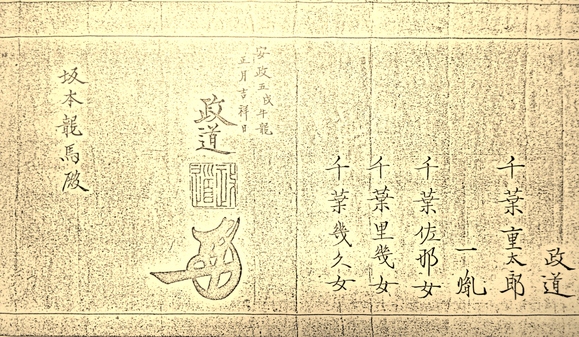 政道
千葉重太郎
一胤
千葉佐那女
千葉里幾女
千葉幾久女
安政五戊午龍
正月吉祥日
政道
坂本龍馬殿